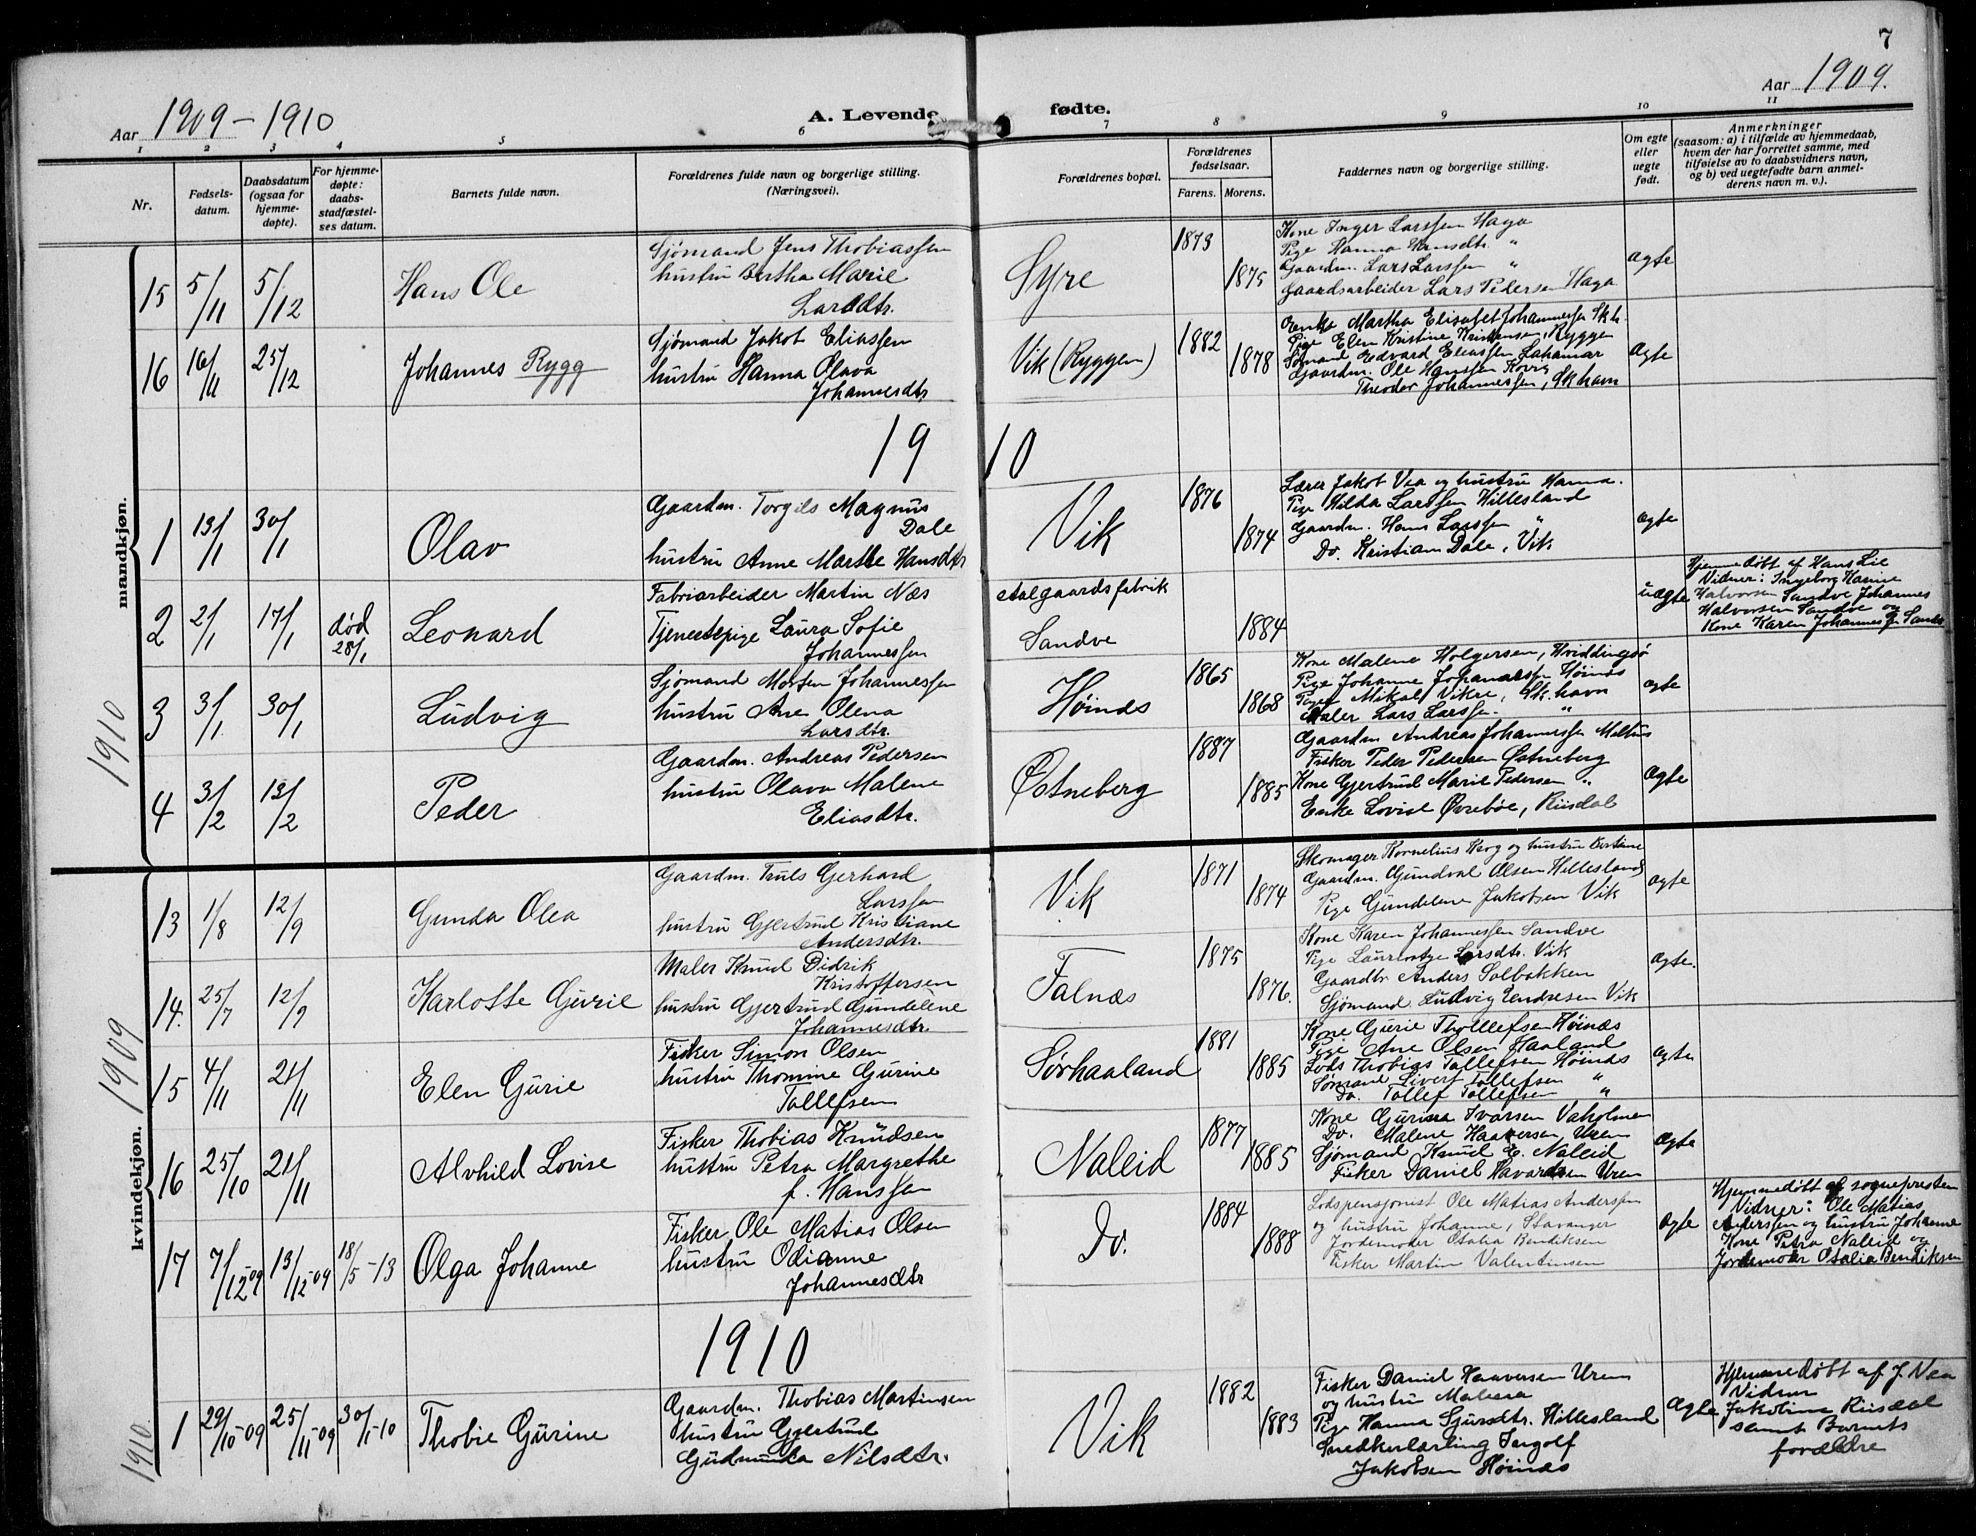 7
Aar 1909-1910
A. Levende fødte.
Aar 1909.
1 2 3 4 5 6 7 8 9 10 11
Nr.
Fødsels-
datum.
Daabsdatum
(ogsaa for
hjemme-
døpte).
For hjemme-
døpte:
daabs-
stadfæstel-
ses datum.
Barnets fulde navn.
Forældrenes fulde navn og borgerlige stilling.
(Næringsvei).
Forældrenes bopæl.
Forældrenes
fødselsaar.
Farens. Morens.
Faddernes navn og borgerlige stilling.
Om egte
eller
uegte
født.
Anmerkninger
(saasom: a) i tilfælde av hjemmedaab,
hvem der har forrettet samme, med
tilføielse av to daabsvidners navn,
og b) ved uegtefødte barn anmel-
derens navn m. v.).
mandkjøn.
15 5/11 5/12 Hans Ole
Sjømand Jens Thobiassen
hustru Bertha Marie
Larsdtr.
Syre 1873 1875
Kone Inger Larssen Haga
Pige Hanna Hansdtr. "
Gaardm. Lars Larssen "
Gaardsarbeider Lars Pedersen Haga
Ægte
16 16/11 25/12 Johannes Rygg
Sjømand Jakob Eliassen
hustru Hanna Olava
Johannesdtr
Vik (Ryggen) 1882 1878
Enke Martha Elisabet Johannessen Skh.
Pige Elen Kristine Kristensen, Ryggen
Sømand Edvard Eliassen
Gaardm. Ole Hanssen
Theodor Johannessen, Skhavn
Ægte
1910
1910
1 13/1 30/1 Olav
Gaardm. Torgils Magnus
Dale
hustru Anne Marthe Hansdtr
Vik 1876 1874
Lærer Jakob Vea og hustru Hanna.
Pige Hilda Larssen Hillesland
Gaardm. Hans Larssen "
Do. Kristian Dale, Vik
Ægte
2 2/1 17/1 død 28/1 Leonard
Fabriarbeider Martin Næs
Tjenestepige Laura Sofie
Johannessen
Aalgaards fabrik
Sandve 1884
uægte
Hjemmedøbt af Hans Lie
Vidner: Ingeborg Karine
Halvorsen Sandve Johannes
Halvorsen Sandve og
Kone Karen Johannessen Sandve
3 3/1 30/1 Ludvig
Sjømand Morten Johannessen
hustru Ane Olena
Larsdtr.
Høinæs 1865 1868
Kone Malene Holgersen, Hviddingsø
Pige Johanne Johannessen Høinæs
Pige Mikal Vikre, Sk.havn
Maler Lars Larssen. "
Ægte
4 3/2 13/2 Peder
Gaardm. Andreas Pedersen
hustru Olava Malene
Eliasdtr.
Østneberg 1887 1885
Gaardm Andreas Johannessen
Fisker Peder Pedersen Østneberg
Kone Gjertrud Marie Pedersen "
Enke Lovise Øvrebøe, Risdal
Ægte
kvindekjøn.
1909
13 1/8 12/9 Gunda Olea
Gaardm. Truls Gerhard
Larssen
hustru Gjertrud Kristiane
Andersdtr.
Vik 1871 1874
Skomager Kornelius Berg og hustru Bertine
Gaardm. Gundval Olsen Hillesland
Pige Gundelene Jakobsen Vik
Ægte
14. 25/7 12/9 Karlotte Gurie
Maler Knud Didrik
Kristoffersen
hustru Gjertrud Gundelene
Johannesdtr.
Falnæs 1875 1876.
Kone Karen Johannessen Sandve
Pige Larsdtr. Vik
Gaardbr Anders Solbakken
Sjømand Ludvig Endresen Vik
Ægte.
15 4/11 21/11 Elen Gurie
Fisker Simon Olsen
hustru Thomine Gurine
Tollefsen
Sørhaaland 1881 1885
Kone Gurie Thollefsen Høinæs
Pige Ane Olsen Haaland
Lods Thobias Tollefsen Høinæs
Sømand Sivert Tollefsen "
Do. Tollef Tollefsen "
Ægte
16 25/10 21/11 Alvhild Lovise
Fisker Thobias Knudsen
hustru Petra Margrethe
f. Hanssen
Naleid 1877 1885
Kone Gurina Ivarsen Vaholmen
Do. Malene Haaversen Uren
Sjømand Knud E. Naleid
Fisker Daniel Havardsen Uren
Ægte
17 7/12-09 13/12-09 18/5-13 Olga Johanne
Fisker Ole Matias Olsen
hustru Odianne
Johannesdtr
Do. 1884 1888
Lodspensjonist Ole Matias Anderssen
og hustru Johanne, Stavanger
Jordemoder Otalia Bendiksen
Fisker Martin Valentinsen
Ægte
Hjemmedøbt af sognepresten
Vidner: Ole Matias
Anderssen og hustru Johanne
Kone Petra Naleid og
Jordemoder Otalia Bendiksen
1910
1910.
1 29/10-09 25/11-09 30/1-10 Thobie Gurine
Gaardm. Thobias Martinsen
hustru Gjertrud
Gudmunda Nilsdtr.
Vik 1882 1883
Fisker Daniel Haaversen Uren
og hustru Malena
Pige Hanna Sjursdtr. Hillesland
Snedkerlærling Ingolf
Jakobsen Høinæs
Ægte
Hjemmedøbt af J. Vea
Vidner
Jakobine Riisdal
samt Barnets
forældre